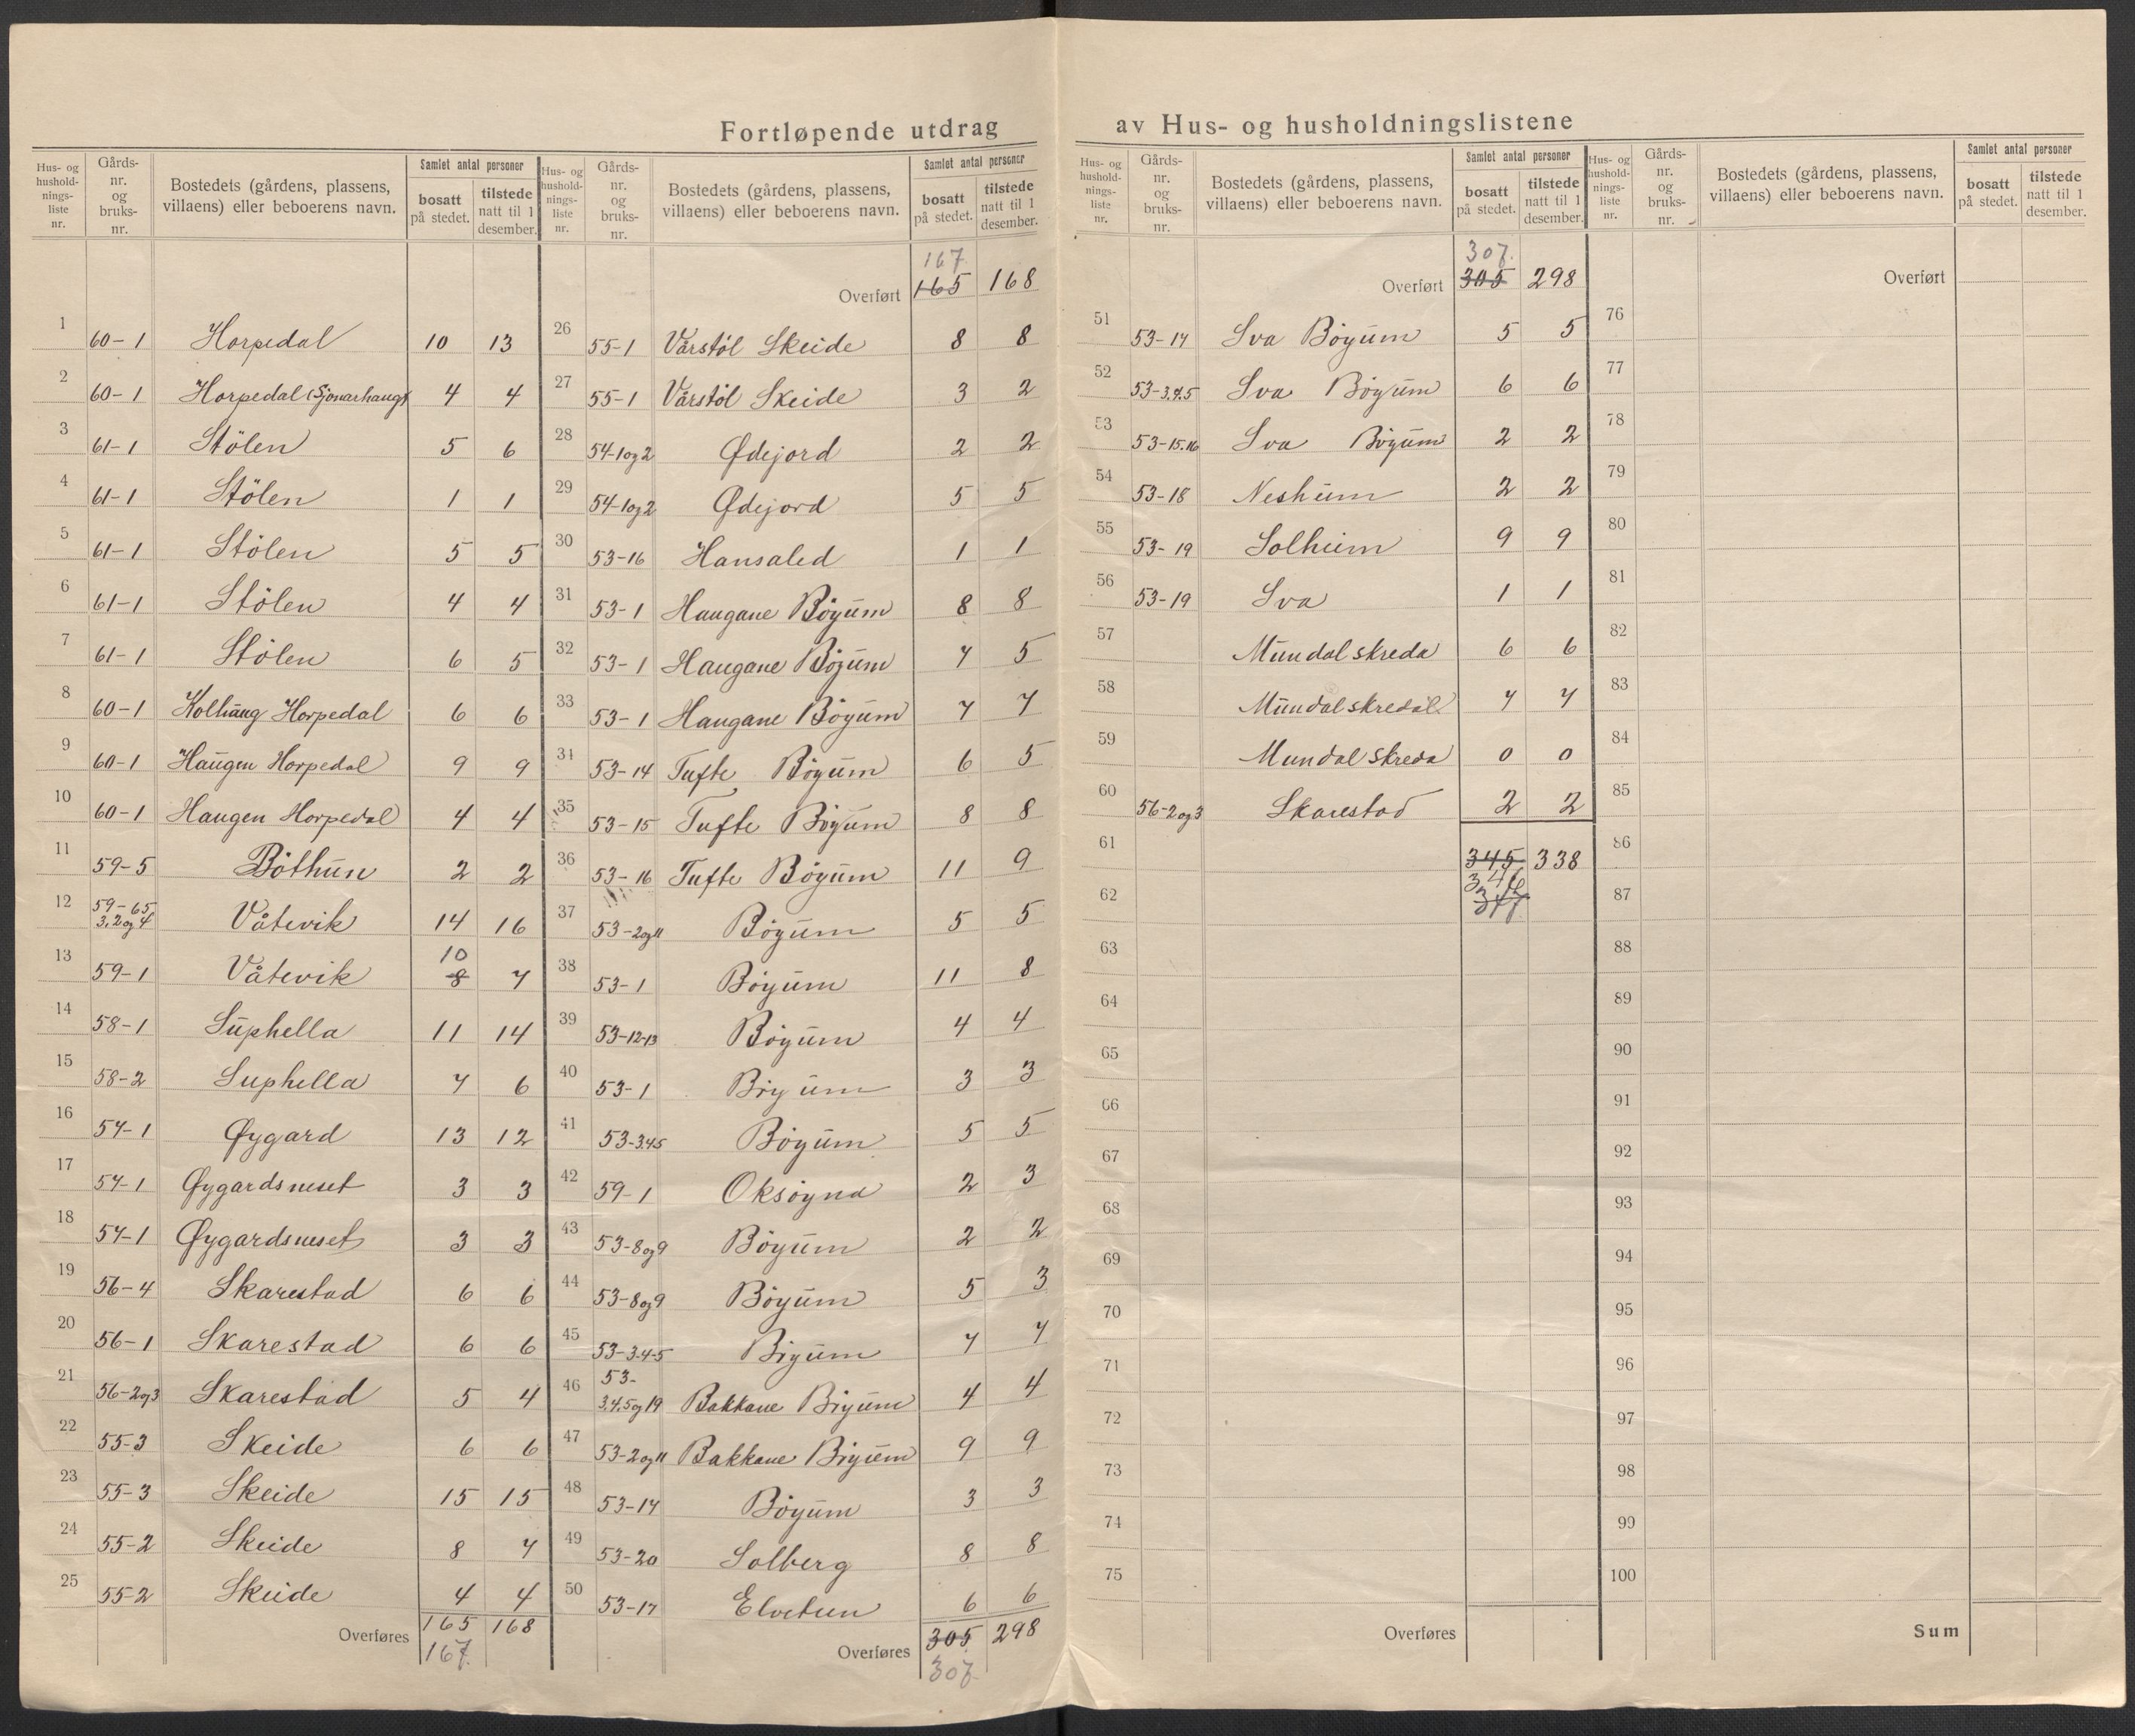 Fortløpende utdrag av Hus- og husholdningslistene
Hus- og husholdnings-liste nr. | Gårds-nr. og bruks-nr. | Bostedets (gårdens, plassens, villaens) eller beboerens navn. | Samlet antal personer | bosatt på stedet. | tilstede natt til 1 desember.
1 60-1 Horpedal 10 13
2 60-1 Horpedal (Sjonarhaug) 4 4
3 61-1 Stölen 5 6
4 61-1 Stölen 1 1
5 61-1 Stölen 5 5
6 61-1 Stölen 4 4
7 61-1 Stölen 6 5
8 60-1 Kolhaug Horpedal 6 6
9 60-1 Haugen Horpedal 9 9
10 60-1 Haugen Horpedal 4 4
11 59-5 Böthun 2 2
12 59-65 3,2og4 Våtevik 14 16
13 59-1 Våtevik 10 8 7
14 58-1 Suphella 11 14
15 58-2 Suphella 7 6
16 57-1 Øygard 13 12
17 57-1 Øygardsneset 3 3
18 57-1 Øygardsneset 3 3
19 56-4 Skarestad 6 6
20 56-1 Skarestad 6 6
21 56-2og3 Skarestad 5 4
22 55-3 Skeide 6 6
23 55-3 Skeide 15 15
24 55-2 Skeide 8 7
25 55-2 Skeide 4 4
Overføres 165 168
167.
Hus- og husholdnings-liste nr. | Gårds-nr. og bruks-nr. | Bostedets (gårdens, plassens, villaens) eller beboerens navn. | Samlet antal personer | bosatt på stedet. | tilstede natt til 1 desember.
167.
Overført 165 168
26 55-1 Vårstöl Skeide 8 8
27 55-1 Vårstöl Skeide 3 2
28 54-1og2 Ødejord 2 2
29 54-1og2 Ødejord 5 5
30 53-16 Hansaled 1 1
31 53-1 Haugane Böyum 8 8
32 53-1 Haugane Böyum 7 5
33 53-1 Haugane Böyum 7 7
34 53-14 Tufte Böyum 6 5
35 53-15 Tufte Böyum 8 8
36 53-16 Tufte Böyum 11 9
37 53-2og11 Böyum 5 5
38 53-1 Böyum 11 8
39 53-12-13 Böyum 4 4
40 53-1 Böyum 3 3
41 53-3.4.5 Böyum 5 5
42 59-1 Oksöyna 2 3
43 53-8og9 Böyum 2 2
44 53-8og9 Böyum 5 3
45 53-3.4-5 Böyum 7 7
46 53-3,4,5og19 Bakkane Böyum 4 4
47 53-2og11 Bakkane Böyum 9 9
48 53-14 Böyum 3 3
49 53-20 Solberg 8 8
50 53-17 Elvetun 6 6
Overføres 305 298
307
Hus- og hushold-nings-liste nr. | Gårds-nr. og bruks-nr. | Bostedets (gårdens, plassens, villaens) eller beboerens navn. | Samlet antal personer | bosatt på stedet. | tilstede natt til 1 desember.
307.
Overført 305 298
51 53-17 Sva Böyum 5 5
52 53-3.4.5 Sva Böyum 6 6
53 53-15.16 Sva Böyum 2 2
54 53-18 Nesheim 2 2
55 53-19 Solheim 9 9
56 53-19 Sva 1 1
57 Mundalskreda 6 6
58 Mundalskredal 7 7
59 Mundalskreda 0 0
60 56-2og3 Skarestad 2 2
61 345 338
62 347
63
64
65
66
67
68
69
70
71
72
73
74
75
Overføres
Hus- og hushold-nings-liste nr. | Gårds-nr. og bruks-nr. | Bostedets (gårdens, plassens, villaens) eller beboerens navn. | Samlet antal personer | bosatt på stedet. | tilstede natt til 1 desember.
Overført
76
77
78
79
80
81
82
83
84
85
86
87
88
89
90
91
92
93
94
95
96
97
98
99
100
Sum